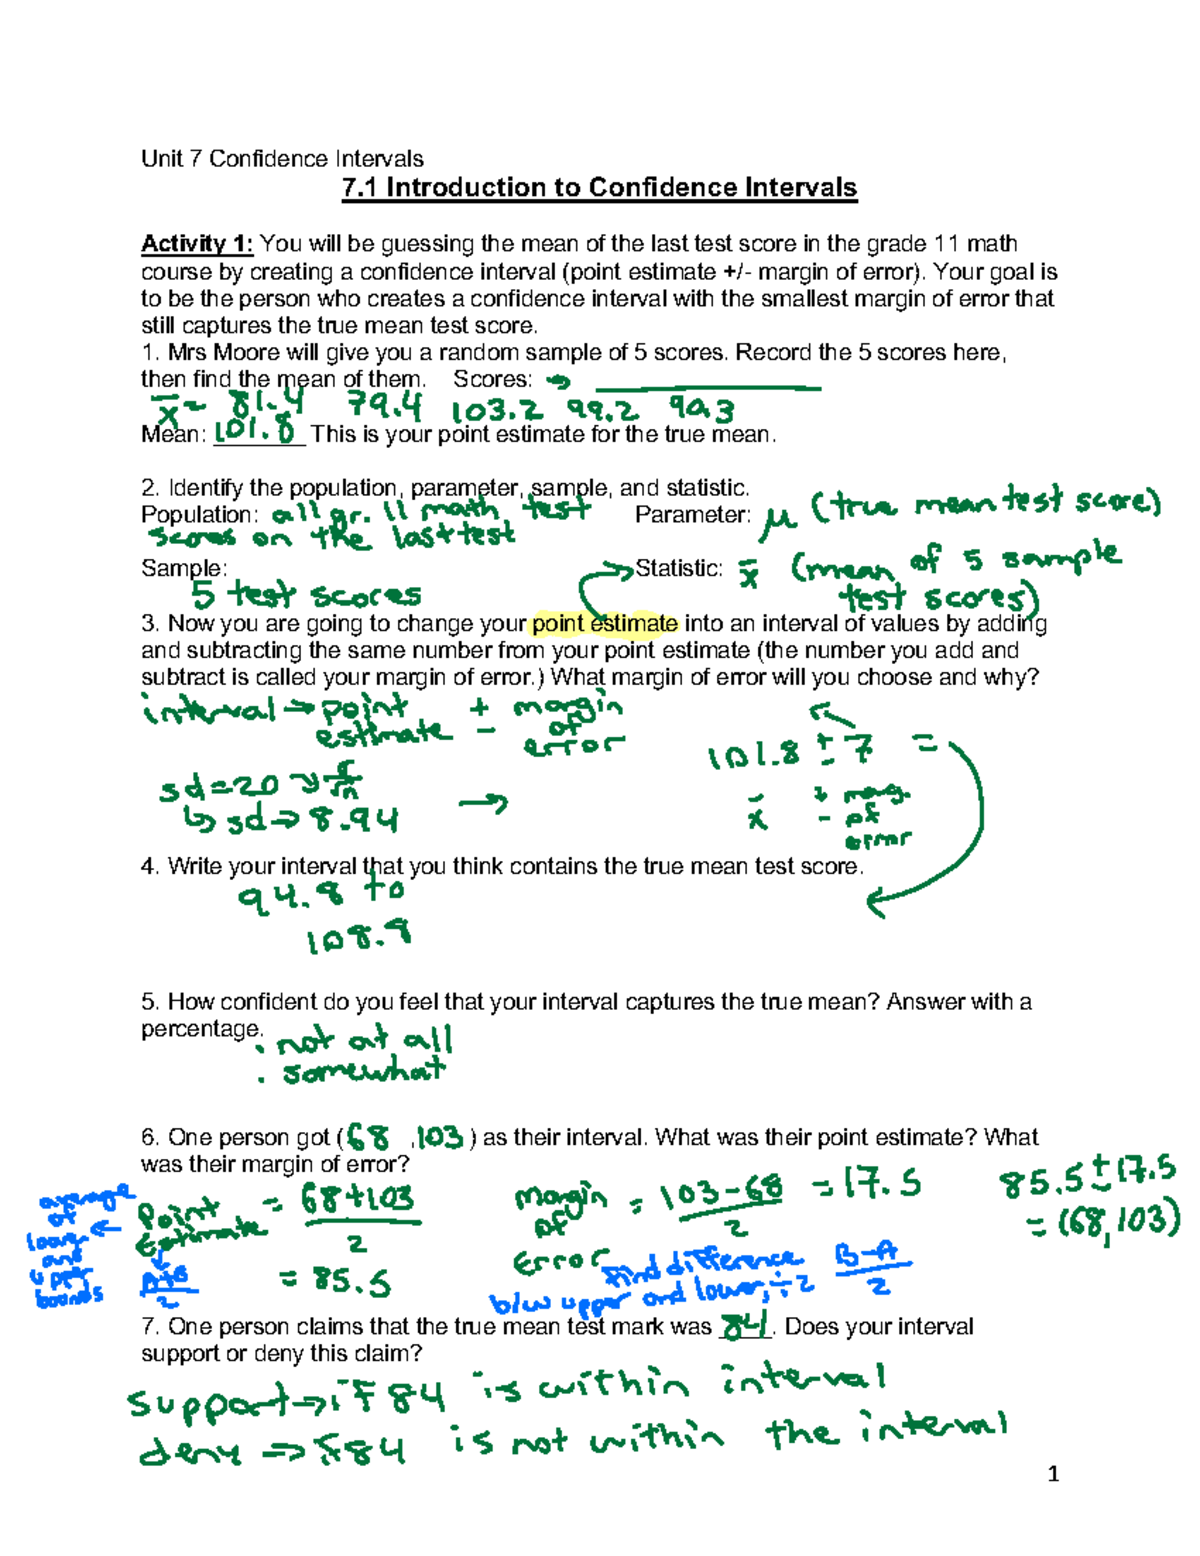 Unit 7 Confidence Intervals
7.1 Introduction to Confidence Intervals
Activity 1: You will be guessing the mean of the last test score in the grade 11 math
course by creating a confidence interval (point estimate +/- margin of error). Your goal is
to be the person who creates a confidence interval with the smallest margin of error that
still captures the true mean test score.
1. Mrs Moore will give you a random sample of 5 scores. Record the 5 scores here,
then find the mean of them. Scores: → ________
x̄ = 81.4 79.4 103.2 99.2 90.3
Mean: 101.8 This is your point estimate for the true mean.
2. Identify the population, parameter, sample, and statistic.
Population: all gr. 11 math test Parameter: μ (true mean test score)
scores on the last test
Sample: Statistic: x̄ (mean of 5 sample
5 test scores test scores)
3. Now you are going to change your point estimate into an interval of values by adding
and subtracting the same number from your point estimate (the number you add and
subtract is called your margin of error.) What margin of error will you choose and why?
interval → point + margin
estimate - of
error
101.8 ± 7 =
sd=20 → σ/√n
x̄ + marg.
- of
error
↳ sd → 8.94 →
4. Write your interval that you think contains the true mean test score.
94.8 to
108.8
5. How confident do you feel that your interval captures the true mean? Answer with a
percentage.
. not at all
. somewhat
6. One person got (68 ,103 ) as their interval. What was their point estimate? What
was their margin of error?
average of lower and upper bounds ←
Point Estimate = 68+103 / 2
= 85.5
A+B / 2
margin of Error = 103-68 / 2 = 17.5
85.5 ± 17.5
= (68, 103)
find difference B-A / 2
b/w upper and lower, ÷2
7. One person claims that the true mean test mark was 84. Does your interval
support or deny this claim?
support → if 84 is within interval
deny → if 84 is not within the interval
1